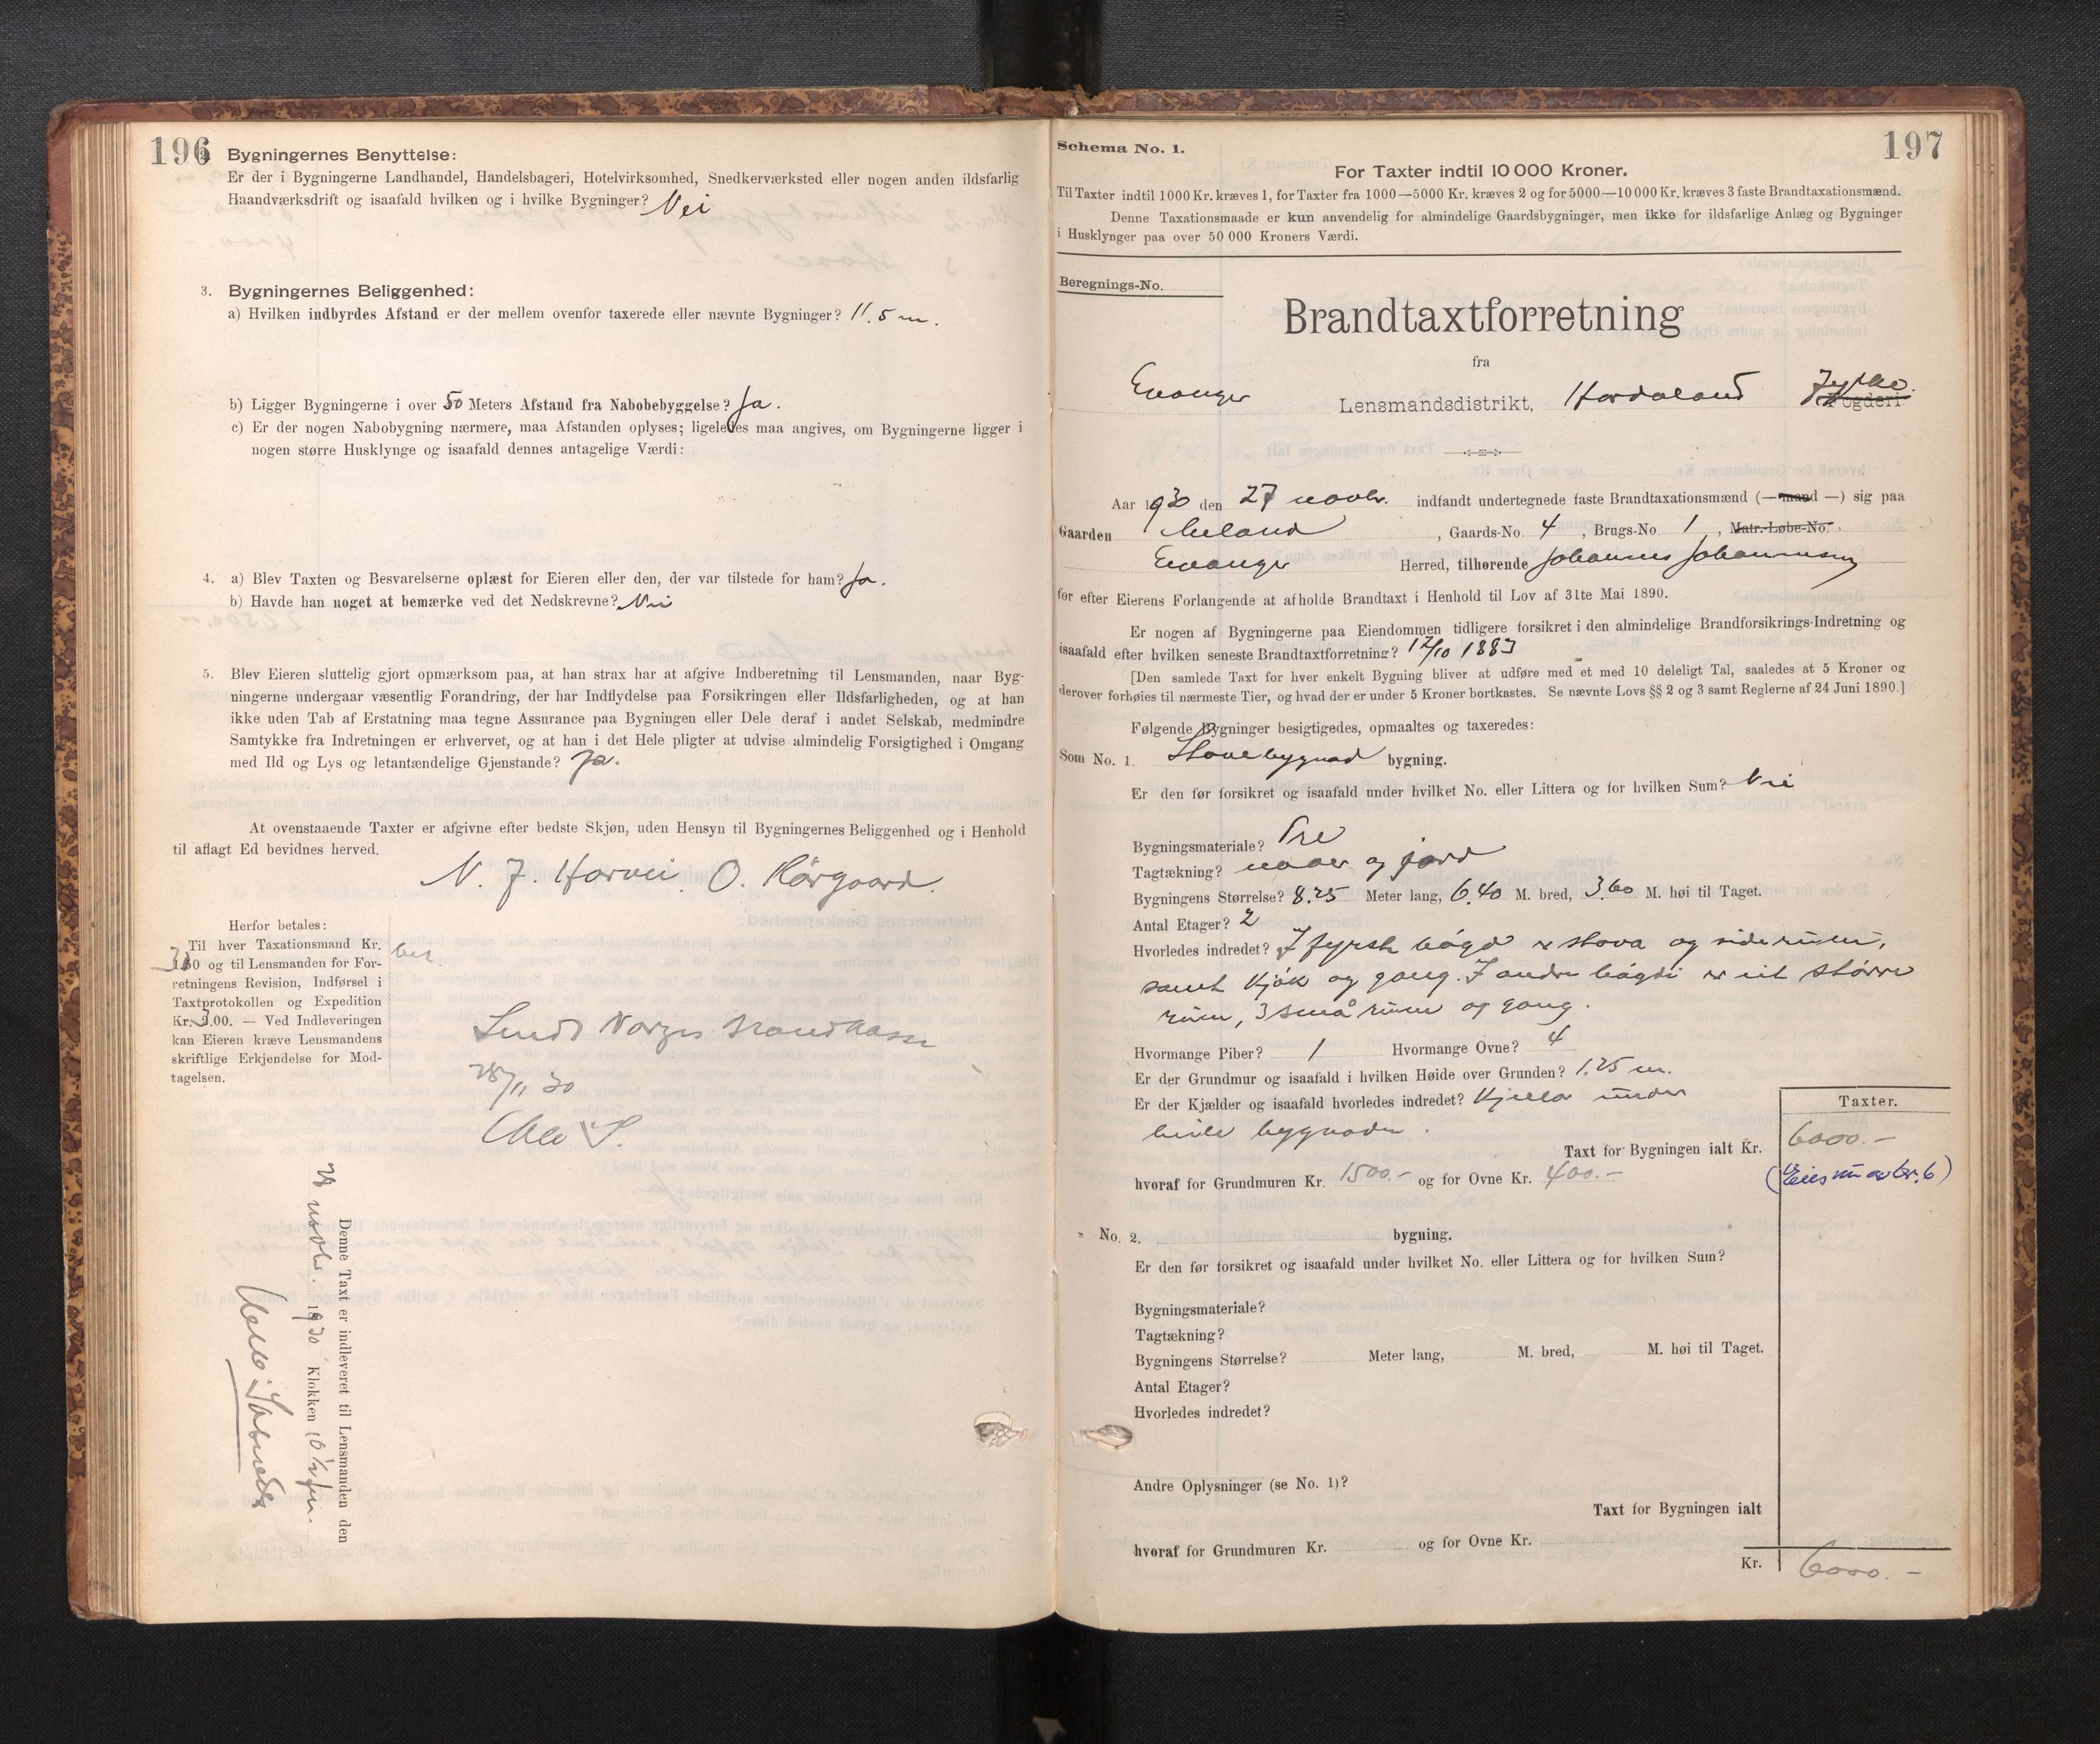 196
Bygningernes Benyttelse:
Er der i Bygningerne Landhandel, Handelsbageri, Hotelvirksomhed, Snedkerværksted eller nogen anden ildsfarlig
Haandværksdrift og isaafald hvilken og i hvilke Bygninger? Nei
3. Bygningernes Beliggenhed:
a) Hvilken indbyrdes Afstand er der mellem ovenfor taxerede eller nævnte Bygninger? 11.5 m.
b) Ligger Bygningerne i over 50 Meters Afstand fra Nabobebyggelse? Ja.
c) Er der nogen Nabobygning nærmere, maa Afstanden oplyses; ligeledes maa angives, om Bygningerne ligger i
nogen større Husklynge og isaafald dennes antagelige Værdi:
4. a) Blev Taxten og Besvarelserne oplæst for Eieren eller den, der var tilstede for ham? Ja.
b) Havde han noget at bemærke ved det Nedskrevne? Nei
5. Blev Eieren sluttelig gjort opmærksom paa, at han strax har at afgive Indberetning til Lensmanden, naar Byg-
ningerne undergaar væsentlig Forandring, der har Indflydelse paa Forsikringen eller Ildsfarligheden, og at han
ikke uden Tab af Erstatning maa tegne Assurance paa Bygningen eller Dele deraf i andet Selskab, medmindre
Samtykke fra Indretningen er erhvervet, og at han i det Hele pligter at udvise almindelig Forsigtighed i Omgang
med Ild og Lys og letantændelige Gjenstande? Ja.
At ovenstaaende Taxter er afgivne efter bedste Skjøn, uden Hensyn til Bygningernes Beliggenhed og i Henhold
til aflagt Ed bevidnes herved.
N. J. Horvei. O. Hörgaard.
Herfor betales:
Til hver Taxationsmand Kr.
1.50 og til Lensmanden for For-
retningens Revision, Indførsel i
Taxtprotokollen og Expedition
Kr. 3.00. — Ved Indleveringen
kan Eieren kræve Lensmandens
skriftlige Erkjendelse for Mod-
tagelsen.
bet.
Sendt Norges Brandkasse
28/11 30
Denne Taxt er indleveret til Lensmanden den
28 novbr. 1930 Klokken 10 1/2 fm.
197
Schema No. 1.
For Taxter indtil 10 000 Kroner.
Til Taxter indtil 1000 Kr. kræves 1, for Taxter fra 1000—5000 Kr. kræves 2 og for 5000—10 000 Kr. kræves 3 faste Brandtaxationsmænd.
Denne Taxationsmaade er kun anvendelig for almindelige Gaardsbygninger, men ikke for ildsfarlige Anlæg og Bygninger
i Husklynger paa over 50 000 Kroners Værdi.
Beregnings-No.
Brandtaxtforretning
fra
Evanger Lensmandsdistrikt, Hordaland Fylke. Fogderi
Aar 1930 den 27 novbr. indfandt undertegnede faste Brandtaxationsmænd (—mand —) sig paa
Gaarden Meland, Gaards-No. 4, Brugs-No. 1, Matr.-Løbe-No.
Evanger Herred, tilhørende Johannes Johannesen
for efter Eierens Forlangende at afholde Brandtaxt i Henhold til Lov af 31te Mai 1890.
Er nogen af Bygningerne paa Eiendommen tidligere forsikret i den almindelige Brandforsikrings-Indretning og
isaafald efter hvilken seneste Brandtaxtforretning? 12/10 1883
[Den samlede Taxt for hver enkelt Bygning bliver at udføre med et med 10 deleligt Tal, saaledes at 5 Kroner og
derover forhøies til nærmeste Tier, og hvad der er under 5 Kroner bortkastes. Se nævnte Lovs §§ 2 og 3 samt Reglerne af 24 Juni 1890.]
Følgende Bygninger besigtigedes, opmaaltes og taxeredes:
Som No. 1. Stovebygnad bygning.
Er den før forsikret og isaafald under hvilket No. eller Littera og for hvilken Sum? Nei
Bygningsmateriale? Tre
Tagtækning? never og jord
Bygningens Størrelse? 8.25 Meter lang, 6.40 M. bred, 3.60 M. høi til Taget.
Antal Etager? 2
Hvorledes indredet? I fyrste högd er stova og siderum,
samt kjök og gang. I andre högdi er eit större
rum, 3 små rum og gang.
Hvormange Piber? 1 Hvormange Ovne? 4
Er der Grundmur og isaafald i hvilken Høide over Grunden? 1.25 m.
Er der Kjælder og isaafald hvorledes indredet? Kjellar under
heile bygnaden.
Taxter.
Taxt for Bygningen ialt Kr. 6000.-
hvoraf for Grundmuren Kr. 1500.- og for Ovne Kr. 400.-
" No. 2. bygning.
Er den før forsikret og isaafald under hvilket No. eller Littera og for hvilken Sum?
Bygningsmateriale?
Tagtækning?
Bygningens Størrelse? Meter lang, M. bred, M. høi til Taget.
Antal Etager?
Hvorledes indredet?
Andre Oplysninger (se No. 1)?
Taxt for Bygningen ialt
hvoraf for Grundmuren Kr. og for Ovne Kr.
Kr. 6000.-